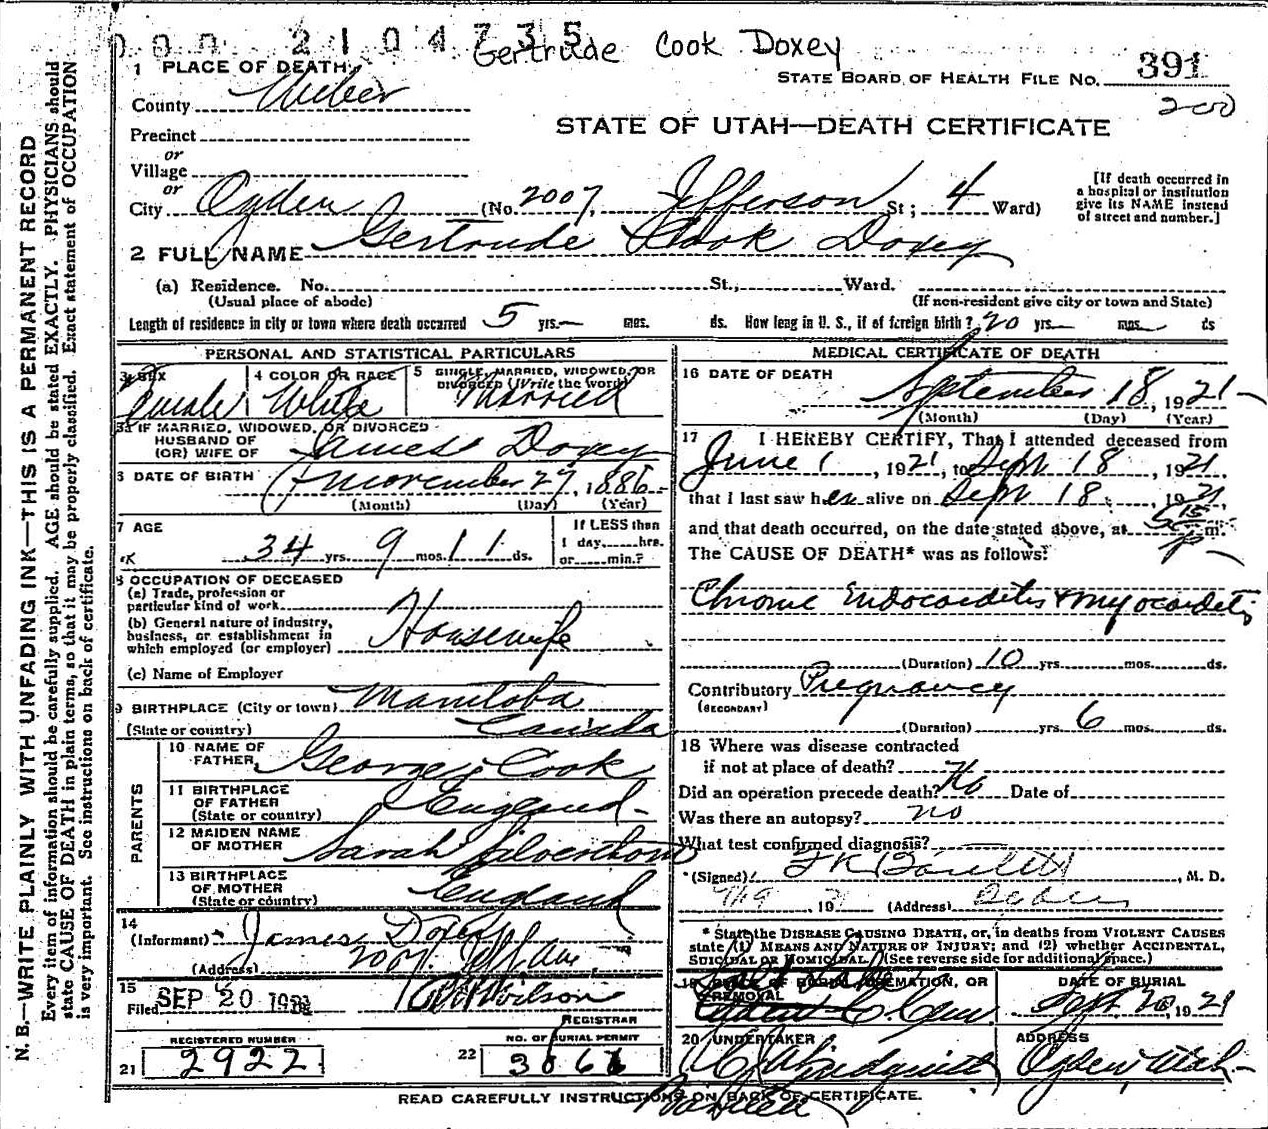 000 2104735
Gertrude Cook Doxey
1 PLACE OF DEATH
STATE BOARD OF HEALTH FILE NO. 391
200
County Weber
STATE OF UTAH—DEATH CERTIFICATE
Precinct
or
Village
or
City Ogden (No. 2007, Jefferson St; 4 Ward)
[If death occurred in
a hospital or institution
give its NAME instead
of street and number.]
2 FULL NAME Gertrude Cook Doxey
(a) Residence. No. St., Ward.
(Usual place of abode) (If non-resident give city or town and State)
Length of residence in city or town where death occurred 5 yrs.— mos. ds. How long in U. S., if of foreign birth? 20 yrs— mos— ds
PERSONAL AND STATISTICAL PARTICULARS
3 SEX 4 COLOR OR RACE 5 SINGLE, MARRIED, WIDOWED, OR
DIVORCED (Write the word)
Female White Married
5a IF MARRIED, WIDOWED, OR DIVORCED
HUSBAND OF
(OR) WIFE OF James Doxey
6 DATE OF BIRTH November 27, 1886
(Month) (Day) (Year)
7 AGE If LESS than
1 day,......hrs.
34 yrs. 9 mos. 11 ds. or......min.?
8 OCCUPATION OF DECEASED
(a) Trade, profession or
particular kind of work
(b) General nature of industry,
business, or establishment in
which employed (or employer) Housewife
(c) Name of Employer
9 BIRTHPLACE (City or town) Manitoba
(State or country) Canada
PARENTS
10 NAME OF
FATHER George Cook
11 BIRTHPLACE
OF FATHER
(State or country) England
12 MAIDEN NAME
OF MOTHER Sarah
13 BIRTHPLACE
OF MOTHER
(State or country) England
14
(Informant) James Doxey
(Address) 2007 Jeff Ave
15
Filed SEP 20 1921 Wilson
REGISTRAR
REGISTERED NUMBER NO. OF BURIAL PERMIT
21 2922 22 3061
MEDICAL CERTIFICATE OF DEATH
16 DATE OF DEATH
September 18, 1921
(Month) (Day) (Year)
17 I HEREBY CERTIFY, That I attended deceased from
June 1, 1921, to Sept 18, 1921
that I last saw her alive on Sept 18, 1921,
and that death occurred, on the date stated above, at 5 15 p m.
The CAUSE OF DEATH* was as follows:
Chronic Endocarditis & myocarditis
(Duration) 10 yrs. mos. ds.
Contributory Pregnancy
(SECONDARY)
(Duration) yrs. 6 mos. ds.
18 Where was disease contracted
if not at place of death?
Did an operation precede death? No Date of
Was there an autopsy? no
What test confirmed diagnosis?
(Signed) , M. D.
, 19 (Address)
* State the DISEASE CAUSING DEATH, or, in deaths from VIOLENT CAUSES
state (1) MEANS AND NATURE OF INJURY; and (2) whether ACCIDENTAL,
SUICIDAL OR HOMICIDAL. (See reverse side for additional space.)
19 PLACE OF BURIAL, CREMATION, OR
REMOVAL
DATE OF BURIAL
Sept 20, 1921
20 UNDERTAKER ADDRESS
Ogden Utah
READ CAREFULLY INSTRUCTIONS ON BACK OF CERTIFICATE.
N. B.—WRITE PLAINLY WITH UNFADING INK—THIS IS A PERMANENT RECORD
Every item of information should be carefully supplied. AGE should be stated EXACTLY. PHYSICIANS should
state CAUSE OF DEATH in plain terms, so that it may be properly classified. Exact statement of OCCUPATION
is very important. See instructions on back of certificate.